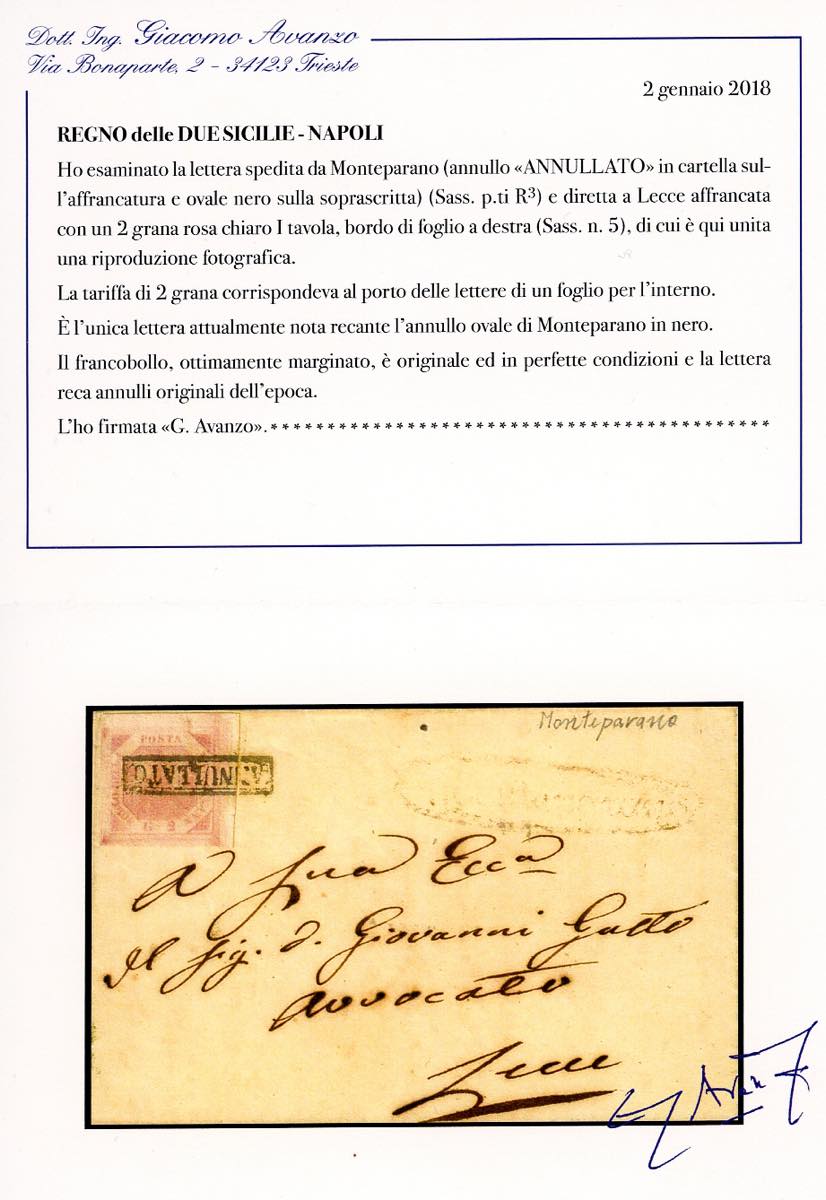 Dott. Ing. Giacomo Avanzo
Via Bonaparte, 2 - 34123 Trieste
2 gennaio 2018
REGNO delle DUE SICILIE - NAPOLI
Ho esaminato la lettera spedita da Monteparano (annullo «ANNULLATO» in cartella sul-
l'affrancatura e ovale nero sulla soprascritta) (Sass. p.ti R³) e diretta a Lecce affrancata
con un 2 grana rosa chiaro I tavola, bordo di foglio a destra (Sass. n. 5), di cui è qui unita
una riproduzione fotografica.
La tariffa di 2 grana corrispondeva al porto delle lettere di un foglio per l'interno.
È l'unica lettera attualmente nota recante l'annullo ovale di Monteparano in nero.
Il francobollo, ottimamente marginato, è originale ed in perfette condizioni e la lettera
reca annulli originali dell'epoca.
L'ho firmata «G. Avanzo». * * * * * * * * * * * * * * * * * * * * * * * * * * * * * * * * * * * * * * * * * * * *
Monteparano
POSTA
ANNULLATO
G. 2
A Sua Ecca
Il Sig. d. Giovanni Gatto
Avvocato
Lecce